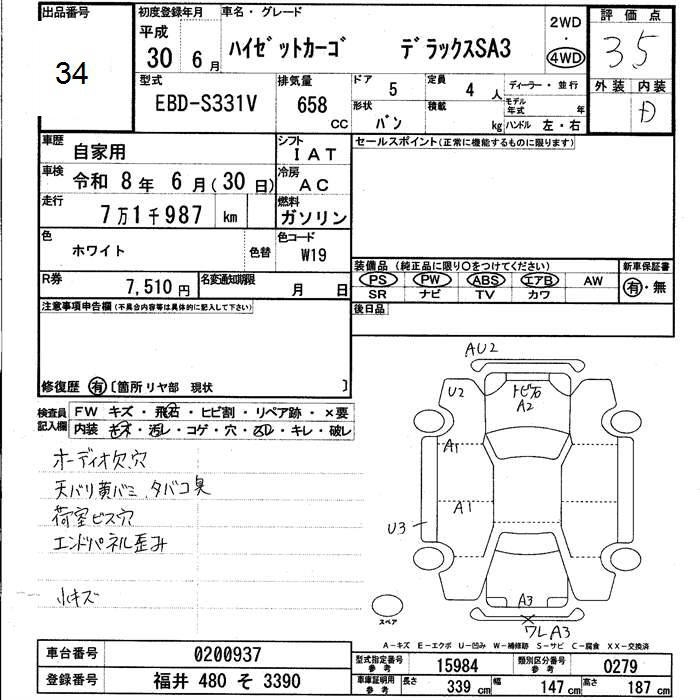 出品番号
34
初度登録年月
平成
30 年 6 月
車名・グレード
ハイゼットカーゴ デラックスSA3
2WD
・
4WD
評価点
3.5
外装 内装
D
型式
EBD-S331V
排気量
658
CC
ドア
5
定員
4 人
ディーラー・並行
形状
バン
積載
kg
モデル年式 年
ハンドル 左・右
車歴
自家用
シフト
IAT
車検
令和 8年 6月(30日)
冷房
AC
走行
7万1千987 km
燃料
ガソリン
色
ホワイト
色替
色コード
W19
R券
7,510 円
名変通知期限
月 日
セールスポイント(正常に機能するものに限ります)
装備品(純正品に限り○をつけてください)
新車保証書
PS PW ABS エアB AW
有・無
SR ナビ TV カワ
後日品
注意事項申告欄(不具合内容等は具体的に記入して下さい)
修復歴 有〔箇所 リヤ部 現状 〕
検査員記入欄
FW キズ・飛石・ヒビ割・リペア跡・×要
内装 キズ・汚レ・コゲ・穴・スレ・キレ・破レ
オーディオ欠、穴
天バリ黄バミ、タバコ臭
荷室ビス穴
エンドパネル歪み
小キズ
AU2
U2
トビ石
A2
A1
A1
U3
A3
ワレA3
スペア
A-キズ E-エクボ U-凹み W-補修跡 S-サビ C-腐食 XX-交換済
車台番号
0200937
登録番号
福井 480 そ 3390
型式指定番号
参考
15984
類別区分番号
参考
0279
車庫証明用
参考
長さ 339 cm 幅 147 cm 高さ 187 cm